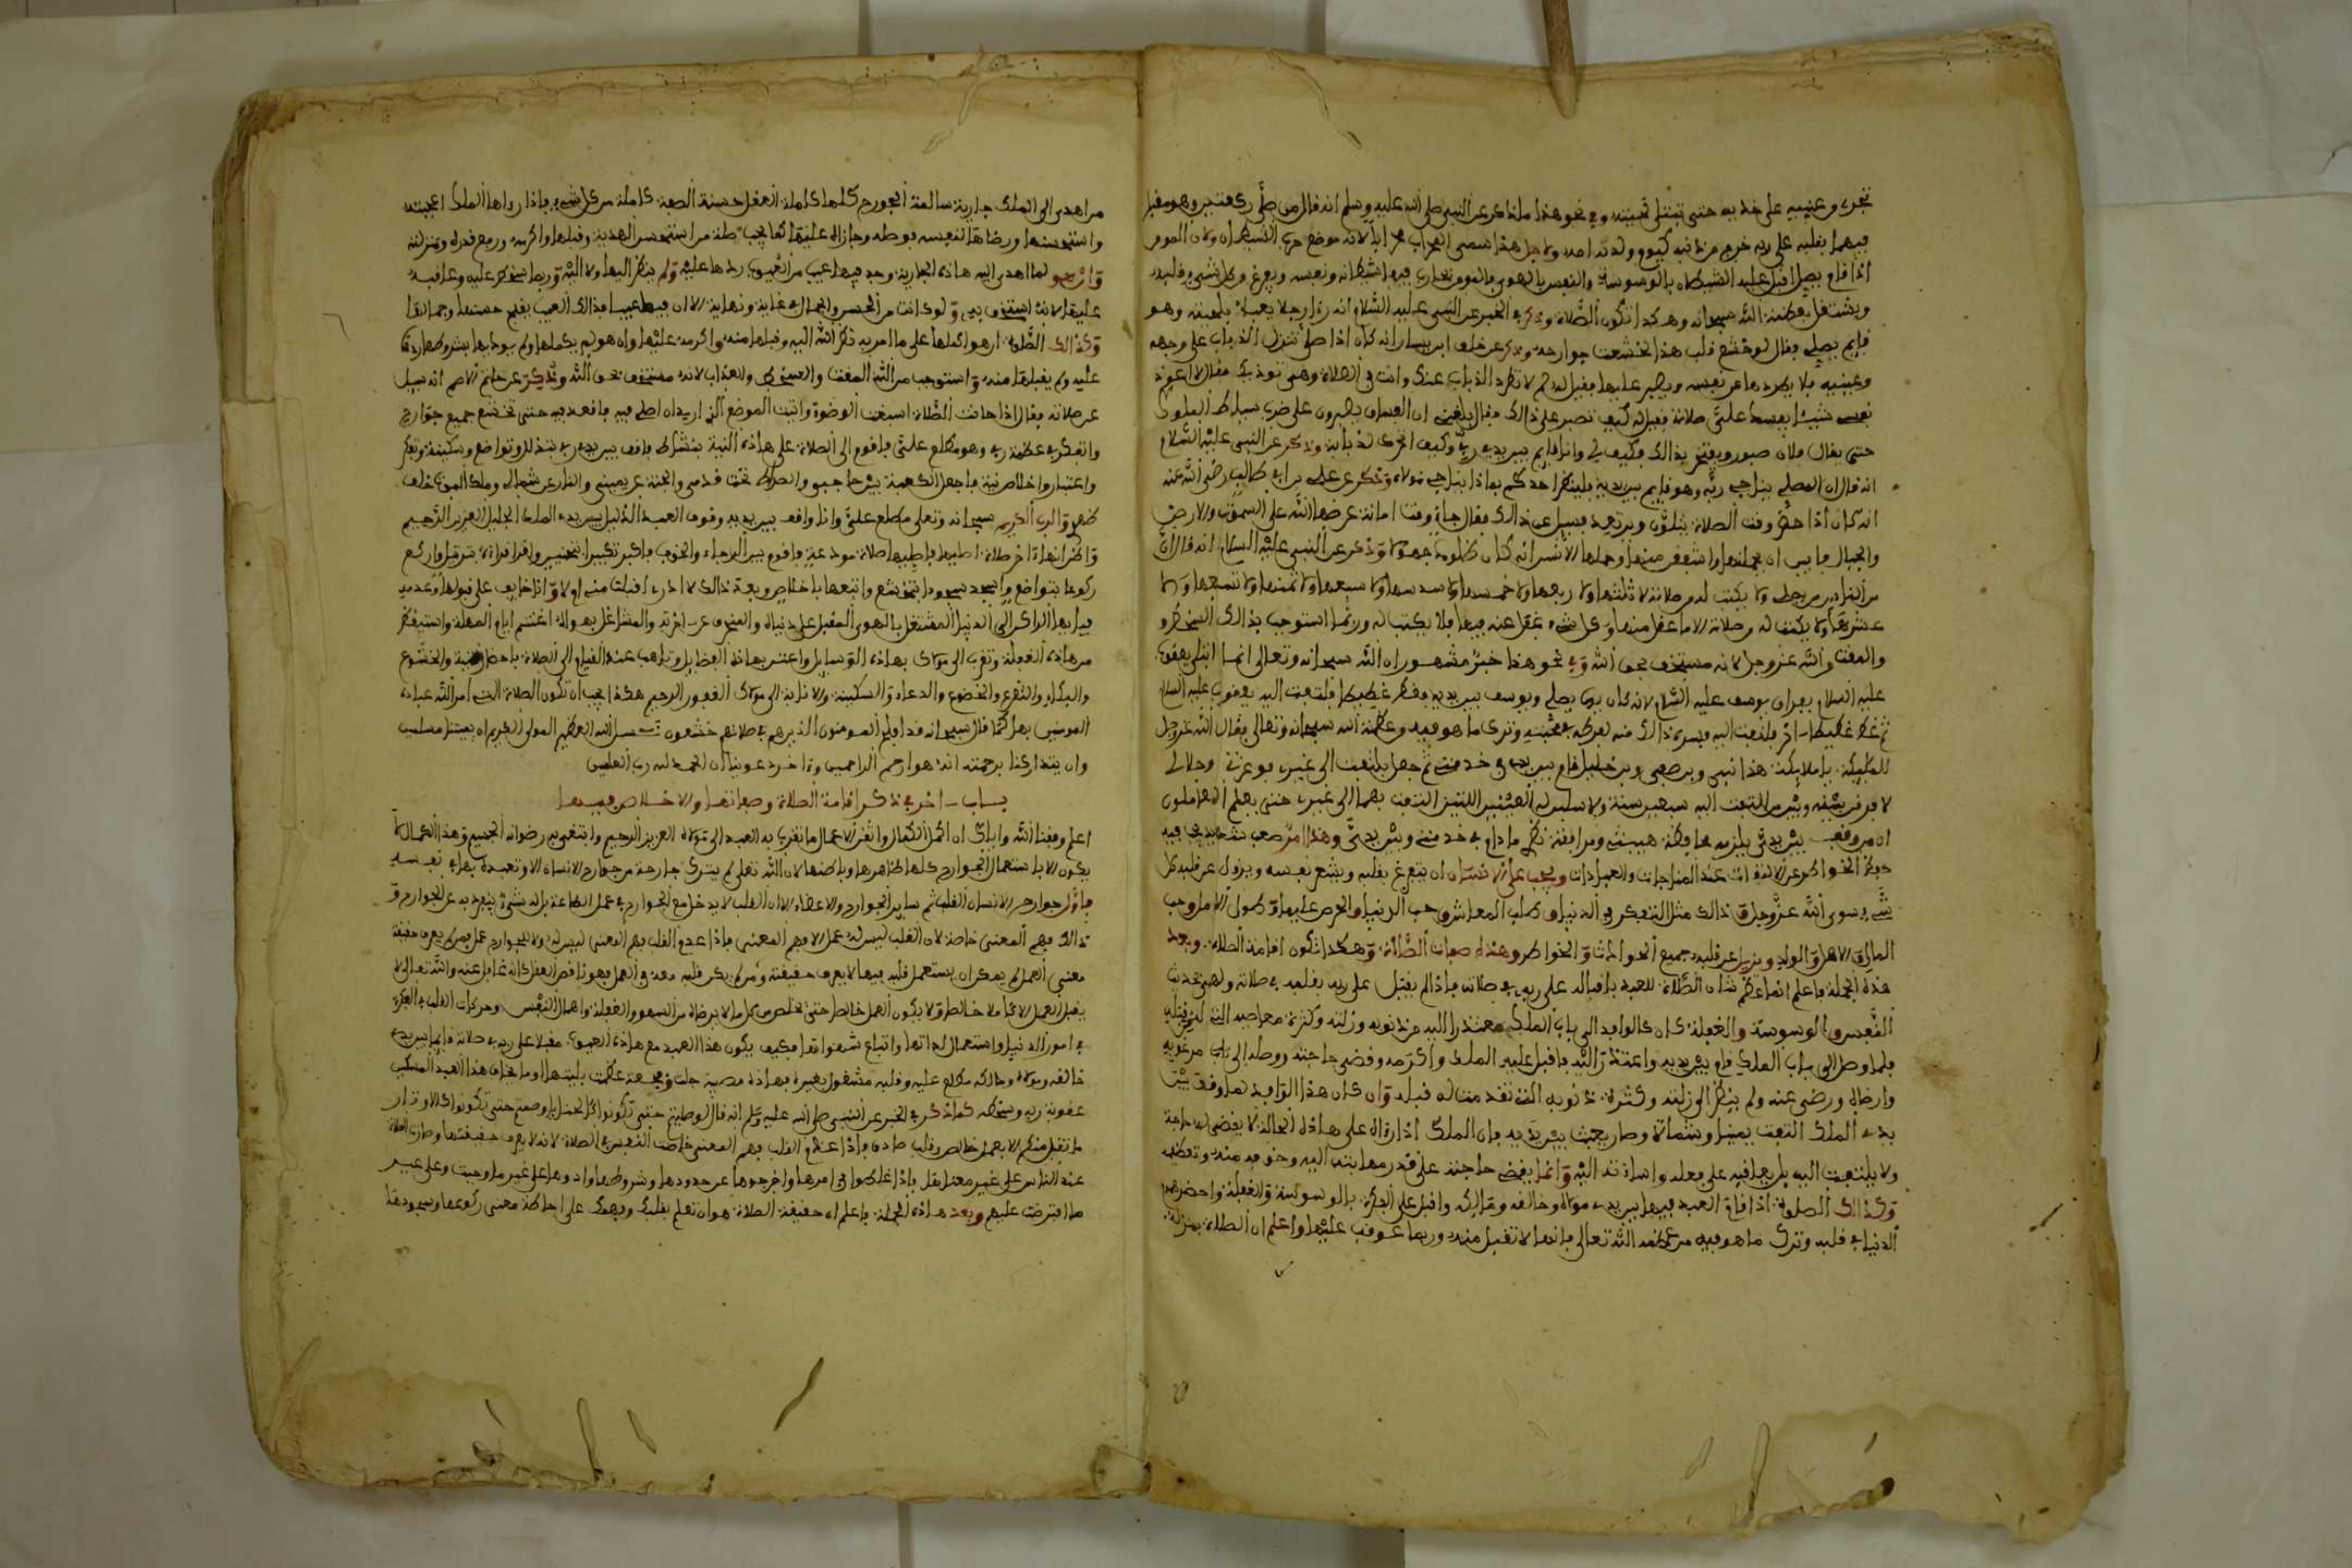 تجري وعينيه على خديه حتى تبتل لحيته وفي نحو هذا ما ذكر عن النبي صلى الله عليه وسلم انه قال من صلى ركعتين وهو مقبل
فيهما بقلبه على ربه خرج من ذنبه كيوم ولدته امه ولاجل هذا سمي المحراب محرابا لانه موضع حرب الشيطان ولان المومن
اذا قام يصلي اقبل عليه الشيطان بالوسوسة والنفس بالهوى فالمومن يحارب فيها شيطانه ونفسه ويفرغ من كل شيء قلبه
ويشتغل بعظمة الله سبحانه وهكذا تكون الصلاة وذكر في الخبر عن النبي عليه السلام انه رءا رجلا يعبث بلحيته وهو
قايم يصلي فقال لو خشع قلب هذا لخشعت جوارحه وذكر عن خلف ابن يسار انه كان اذا صلى تنزل الذباب على وجهه
وعينيه فلا يطردها عن نفسه ويصبر عليها فقيل له لم لا تطرد الذباب عنك وانت في الصلاة وهي توذيك فقال لا اعود
نفسي شيئا يفسد علي صلاتي فقيل له كيف تصبر على ذالك فقال بلغني ان الفساق يصبرون على ضرب سياط الملوك
حتى يقال فلان صبور ويفتخر بذالك فكيف لي وانا قايم بين يدي ربي وكيف اتحرك لذبابة وذكر عن النبي عليه السلام
انه قال ان المصلي يناجي ربه وهو قايم بين يديه فلينظر احدكم بماذا يناجي مولاه وذكر عن علي بن ابي طالب رضي الله عنه
انه كان اذا حضر وقت الصلاة يتلون ويرتعد فسيل عن ذالك فقال جاء وقت امانة عرضها الله على السموات والارض
والجبال فابين ان يحملنها واشفقن منها وحملها الانسان انه كان ظلوما جهولا وذكر عن النبي عليه السلام انه قال ان
من الناس من يصلي ولا يكتب له من صلاته لا ثلثها ولا ربعها ولا خمسها ولا سدسها ولا سبعها ولا ثمنها ولا تسعها ولا
عشرها ولا يكتب له من صلاته الا ما عقل منها وكل شيء غفل عنه فيها فلا يكتب له وربما استوجب بذالك السخط
والمقت والله عز وجل لانه مستخف بحق الله وفي نحو هذا خبر مشهور ان الله سبحانه وتعالى انما ابتلى يعقوب
عليه السلام بفراق يوسف عليه السلام لانه كان يوما يصلي ويوسف بين يديه فغط غطيطا فلتفت اليه يعقوب عليه السلام
ثم غط غطيطا اخر فلتفت اليه فسره ذالك منه لفرطه في محبته وترك ما هو فيه وعظمة الله سبحانه وتعالى فقال الله عز وجل
للمليكة يا ملايكتي هذا نبيي وابن صفيي وابن خليلي قام بين يدي في خدمتي ثم جعل يلتفت الى غيري فوعزتي وجلالي
لافرقن بينه وبين من التفت اليه سبعين سنة ولاسلبن له العينين اللتين التفت بهما الى غيري حتى يعلم العاملون
ان من وقف بين يدي يلزمه محافظة هيبتي ومراقبة نظري ما دام في خدمتي وبين يدي وهذا امر صعب شديد يجب فيه
حفظ الخواطر عن الالتفات عند المناجات والعبادات ويجب على الانسان ان يتفرغ بقلبه ويشع نفسه ويزول عن قلبه كل
شيء سوى الله عز وجل وذالك مثل التفكر في الدنيا وطلب المعاش وحب الدنيا والحرص عليها وطول الامل وحب
المال والاهل والولد ويزيل عن قلبه جميع الحوادث والخواطر وهذه صفات الصلاة وهكذا تكون اقامة الصلاة وبعد
هذه الجملة فاعلم انما عظم شان الصلاة للعبد باقباله على ربه في صلاته فاذا لم يقبل على ربه بقلبه في صلاته ولهى بحديث
النفس والوسوسة والغفلة كان كالوافد الى باب الملك معتذرا اليه من ذنوبه وزلته وكثرة معاصيه
فلما وصل الى باب الملك قام بين يديه واعتذر اليه فاقبل عليه الملك واكرمه وقضى حاجته ووصله الى باب مرغوبه
وارضاه ورضي عنه ولم ينظر الى زلته وكثرة ذنوبه التي تقدمت له قبل وان كان هذا الوافد لما وقف بين
يدي الملك التفت يمينا وشمالا وصار يعبث بين يديه فان الملك اذا رءاه على هاذه الحالة لا يقضي له حاجة
ولا يلتفت اليه بل يعاقبه على فعله واساءته اليه وانما يقضي حاجته على قدر رهبته اليه وخوفه منه وتعظيمه
وكذالك الصلوة اذا قام العبد فيها بين يدي مولاه وخالقه ومالكه واقبل على الفكرة بالوسوسة والغفلة واحضر هم
الدنيا في قلبه وترك ما هو فيه من عظمة الله تعالى فانها لا تقبل منه وربما عوقب عليها واعلم ان الصلاة بمنزلة
من اهدى الى الملك جارية سالمة الجوارح كلها كاملة العقل حسنة الصفة كاملة من كل شيء فاذا رءاها الملك اعجبته
واستحسنها ورضاها لنفسه فوصله وجازاه عليها كما يجب صلة من استحسن الهدية وقبلها واكرمه ورفع قدره ومنزلته
وان هو لما اهدى اليه هاذه الجارية وجد فيها عيب من العيوب ردها عليه ولم ينظر اليها ولا اليه وربما سخط عليه وعاقبه
عليها لانه استخف به ولو كانت من الحسن والجمال في غاية ونهاية الا ان فيها عيبا فذالك العيب يغلب حسنها وجمالها
وكذالك الصلوة ان هو اكملها على ما امر به ذكر الله اليه وقبلها منه واكرمه عليها وان هو لم يكملها ولم يوت بها بشروطها ردها
عليه ولم يقبلها منه واستوجب من الله المقت والسخط والعذاب لانه مستخف بحق الله وذكر عن حاتم الاصم انه سيل
عن صلاته فقال اذا حانت الصلاة اسبغت الوضوء واتيت الموضع الذي اريد ان اصلي فيه فاقعد فيه حتى تخشع جميع جوارحي
واتفكر في عظمة ربي وهو مطلع علي فاقوم الى الصلاة على هاذه النية بنشاط فاقف بين يدي ربي بتذلل وتواضع وسكينة وتفكر
واعتبار واخلاص نية فاجعل الكعبة بين حاجبي والصراط تحت قدمي والجنة عن يميني والنار عن شمالي وملك الموت خلف
ظهري والرب الكريم سبحانه وتعالى مطلع علي وانا واقف بين يديه وقوف العبد الذليل بين يدي الملك الجليل العزيز الرحيم
واظن انها اخر صلاة اصليها فاصليها صلاة مودع فاقوم بين الرجاء والخوف فاكبر تكبيرا بتحنين واقرا قراءة بترتيل واركع
ركوعا بتواضع واسجد سجودا بتخشع واتبعها باخلاص وبعد ذالك لا ادري اقبلت مني ام لا وانا خايف على قبولها وعدمه
فيا ايها الراكن الى الدنيا المشتغل بالهوى المقبل على دنياه والمنحرف عن اخرته والمشاغل بهواه اغتنم ايام المهلة واستيقظ
من هاذه الغفلة وتقرب الى مولاك بهاذه الوسايل واعتبر بهاذه الفضايل وتاهب عند القيام الى الصلاة باحضار النية والخشوع
والبكاء والتضرع والخضوع والدعاء والسكينة والانابة الى مولاك الغفور الرحيم هكذا يجب ان تكون الصلاة التي امر الله عباده
المومنين بها كما قال سبحانه قد افلح المومنون الذين هم في صلاتهم خشعون نسل الله العظيم المولى الكريم ان يميتنا مسلمين
وان يتداركنا برحمته انه هو ارحم الراحمين وءاخر دعوينا ان الحمد لله رب العلمين
باب ـ اخر في ذكر اقامة الصلاة وصفاتها والاخلاص فيها
اعلم وفقنا الله واياك ان اكمل الكمال واتقن الاعمال ما تقرب به العبد الى مولاه العزيز الرحيم وابتغي به رضوانه الجسيم وهذا الكمال لا
يكون الا باستعمال الجوارح كلها ظاهرها وباطنها لان الله تعلى لم يترك جارحة من جوارح الانسان الا وتعبده بها في نفسه
فاول جوارح الانسان القلب ثم ساير الجوارح والاعضاء الا ان القلب لا يدخل مع الجوارح في عمل الطاعة بل له شيء ينفرد به عن الجوارح و
ذالك فهم المعنى خاصة لان القلب ليس له عمل الا فهم المعنى فاذا عدم القلب فهم المعنى ليس له ولا للجوارح عمل فمن لم يعرف حقيقة
معنى العمل لم يمكن ان يستعمل قلبه فيما لا يعرف حقيقته ومن لم يكن قلبه معه في العمل فهو ناقص العقل كانه غافل عنه والله تعالى لا
يقبل العمل الا كاملا خالصا ولا يكون العمل خالصا حتى يخلص من كل ما لا يرضاه من السهو والغفلة واهمال النفس وحركات القلب في الفكرة
في امور الدنيا واستعمال لذاتها واتباع شهواتها فكيف يكون هذا العبد مع هاذه العيوب مقبلا على ربه في صلاته قايما بين يدي
خالقه ومولاه ومالكه مطلع عليه وقلبه مشغول بغيره فهاذه مصيبة جلت وفجعة عظمت بليتها اوما يخاف هذا العبد المسكين
عقوبة ربه وسخطه كما ذكر في الخبر عن النبي صلى الله عليه وسلم انه قال لو صليتم حتى تكونوا كالحنايا وصمتم حتى تكونوا كالاوتار
ما تقبل منكم الا بعمل خالص وقلب صادق فاذا عدم القلب فهم المعنى خاضت النفس في الصلاة لانه لا يعرف حقيقتها وصارت الصلاة
عند الناس على غير معنا بقل فاذا غلطوا في امرها واخرجوها عن حدودها وشروطها وادوها على غير ما وجبت وعلى غير
ما افترضت عليهم وبعد هاذه الجملة فاعلم ان حقيقة الصلاة هو ان تعلم بقلبك وفهمك على احاطة معنى ركوعها وسجودها